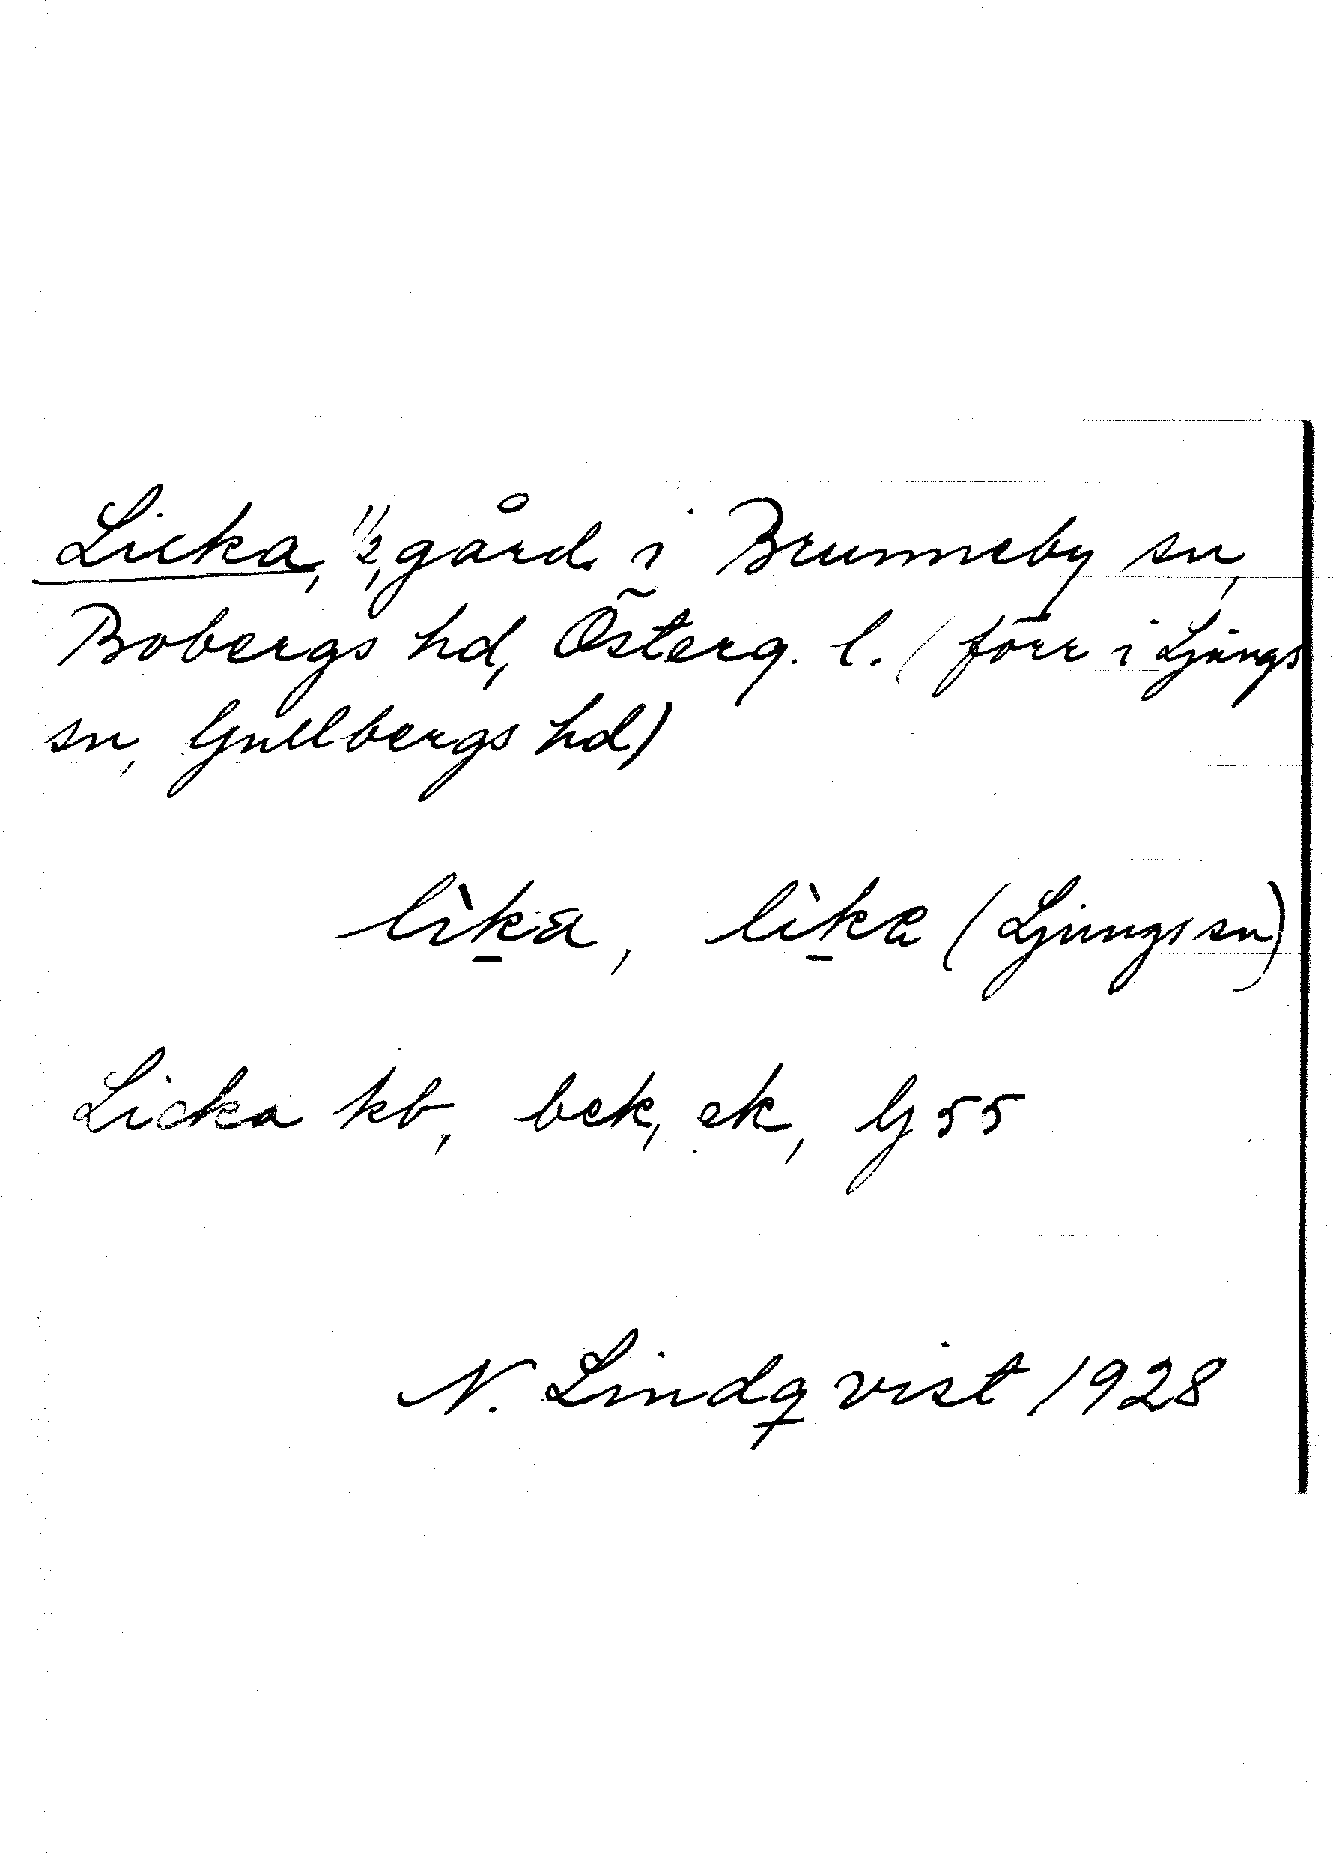 Licka, 1/2 gård i Brunneby sn,
Bobergs hd, Österg. l. (förr i Ljungs
sn, Gullbergs hd)
lìka, lìkæ (Ljungs sn)
Licka kb, bek, ek, G 55
N. Lindqvist 1928